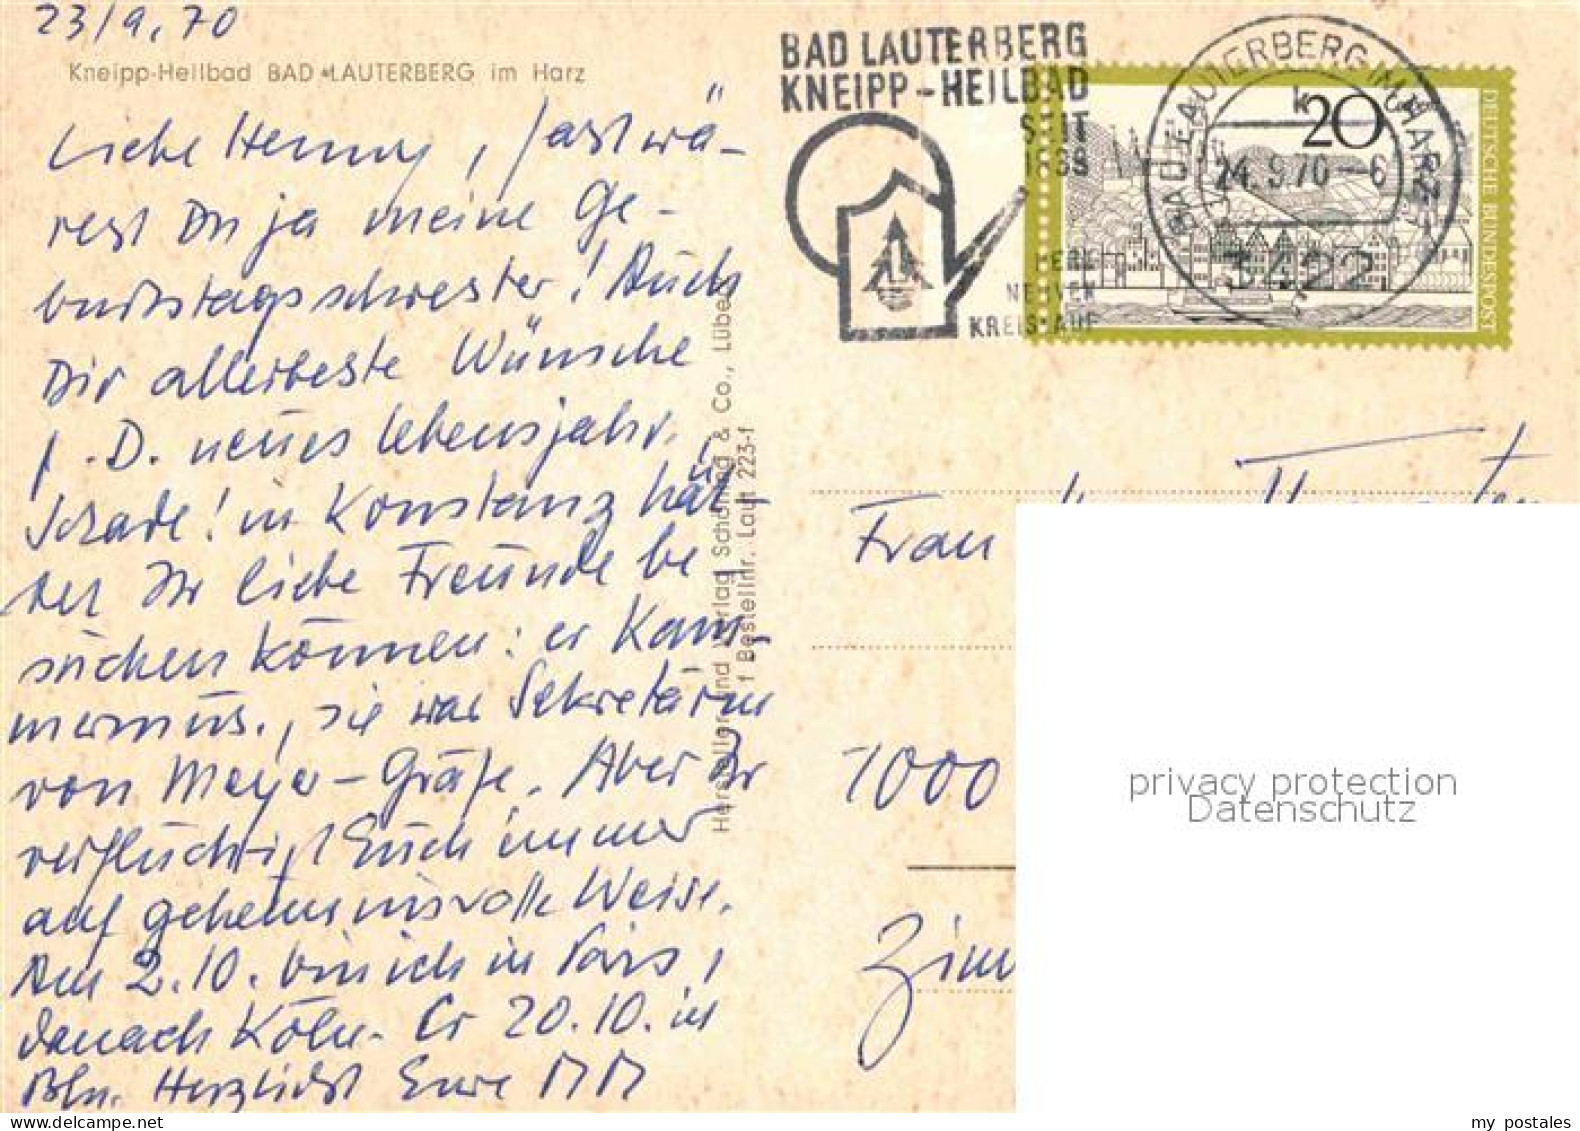 23/9.70
Kneipp-Heilbad BAD LAUTERBERG im Harz
Liebe Henny, fast wä-
rest Du ja meine Ge-
burtstagsschwester! Auch
Dir allerbeste Wünsche
f. D. neues Lebensjahr.
Schade! in Konstanz hät-
tet Ihr liebe Freunde be-
suchen können: er Kam-
mermus., sie war Sekretärin
von Meyer-Gräfe. Aber Ihr
verflüchtigt Euch immer
auf geheimnisvolle Weise.
Am 2.10. bin ich in Paris,
danach Köln. Cr 20.10. in
Bln. Herzlichst Eure MM
Hersteller und Verlag Schöning & Co., Lübeck
f Bestellnr. Laut 223-f
BAD LAUTERBERG
KNEIPP-HEILBAD
SEIT
KREISLAUF
BAD LAUTERBERG IM HARZ
k
24.9.70-6
3422
20
DEUTSCHE BUNDESPOST
Frau
1000
Zim
privacy protection
Datenschutz
www.delcampe.net
my postales